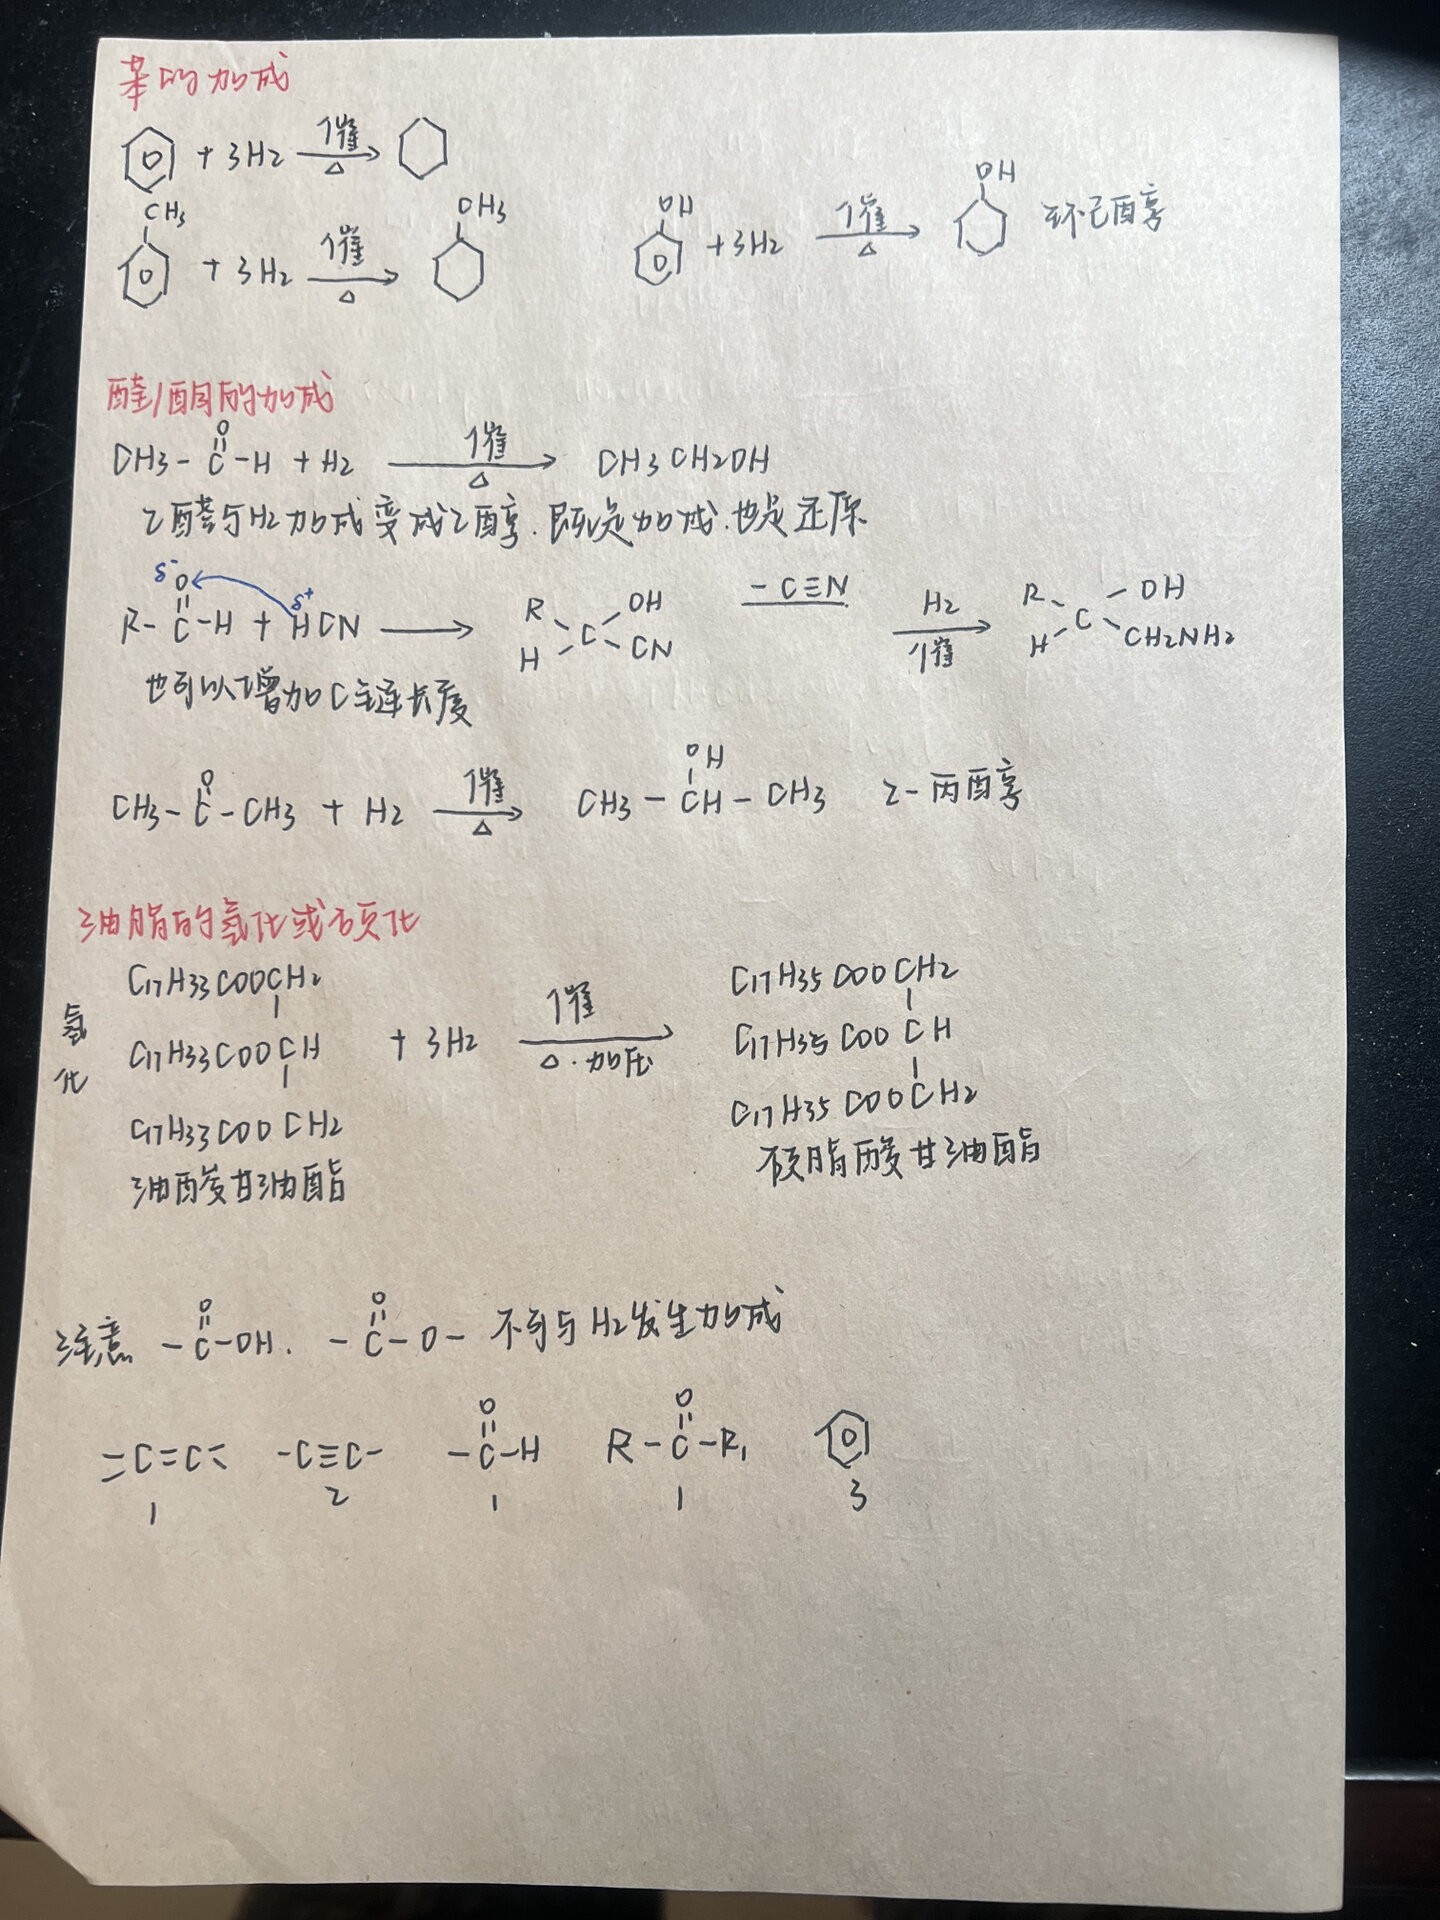 苯的加成
+ 3H2 催 △
CH3 + 3H2 催 △ CH3
OH + 3H2 催 △ OH 环己醇
醛/酮的加成
CH3-C(=O)-H + H2 催 △ CH3CH2OH
乙醛与H2加成变成乙醇.既是加成.也是还原
δ- δ+
R-C(=O)-H + HCN → R H C OH CN -C≡N H2 催 → R H C OH CH2NH2
也可以增加C主连长度
CH3-C(=O)-CH3 + H2 催 △ CH3-CH(OH)-CH3 2-丙醇
油脂的氢化或硬化
氢化
C17H33COOCH2
C17H33COOCH + 3H2 催 △.加压
C17H33COOCH2
油酸甘油酯
C17H35COOCH2
C17H35COOCH
C17H35COOCH2
硬脂酸甘油酯
注意 -C(=O)-OH. -C(=O)-O- 不可与H2发生加成
=C=C< -C≡C- -C(=O)-H R-C(=O)-R1
1 2 1 1 3